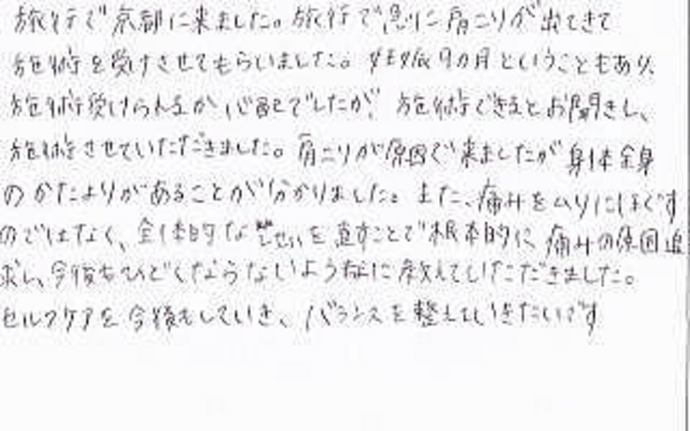 旅行で京都に来ました。旅行で急に肩こりが出てきて
施術を受けさせてもらいました。妊娠9カ月ということもあり、
施術受けられるか心配でしたが、施術できるとお聞きし、
施術させていただきました。肩こりが原因で来ましたが身体全身
のかたよりがあることが分かりました。また、痛みをムリにほぐす
のではなく、全体的な姿勢を直すことで根本的に、痛みの原因追
求し、今後もひどくならないように教えていただきました。
セルフケアを今後もしていき、バランスを整えていきたいです